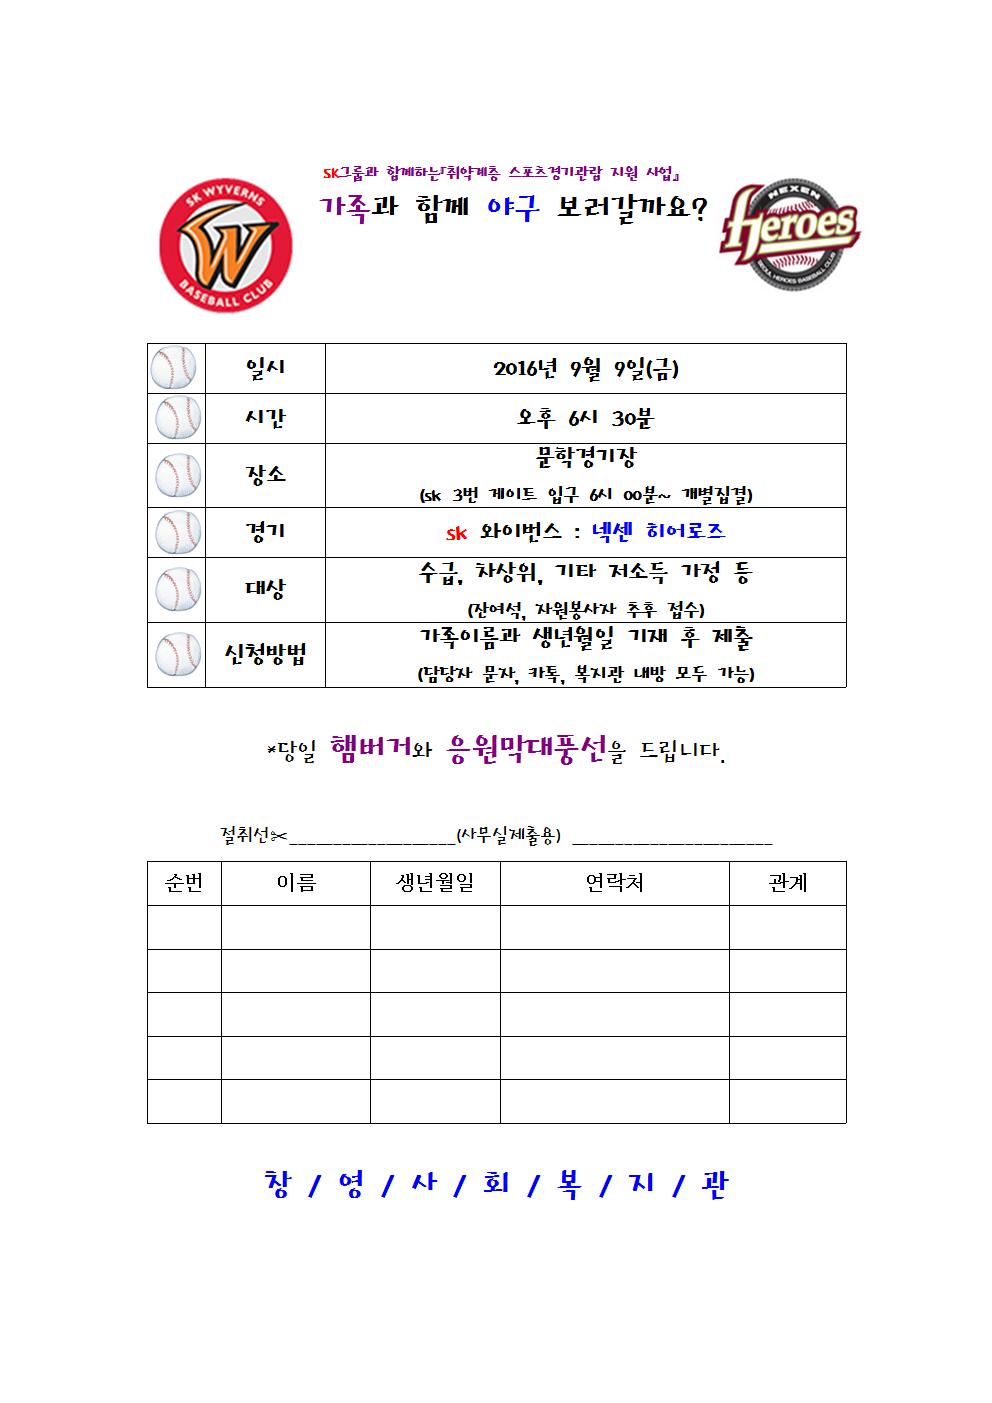 SK그룹과 함께하는『취약계층 스포츠경기관람 지원 사업』
가족과 함께 야구 보러갈까요?
SK WYVERNS
W
BASEBALL CLUB
NEXEN
Heroes
SEOUL HEROES BASEBALL CLUB
일시 2016년 9월 9일(금)
시간 오후 6시 30분
장소 문학경기장
(sk 3번 게이트 입구 6시 00분~ 개별집결)
경기 sk 와이번스 : 넥센 히어로즈
대상 수급, 차상위, 기타 저소득 가정 등
(잔여석, 자원봉사자 추후 접수)
신청방법 가족이름과 생년월일 기재 후 제출
(담당자 문자, 카톡, 복지관 내방 모두 가능)
*당일 햄버거와 응원막대풍선을 드립니다.
절취선✂___________________(사무실제출용) _______________________
순번 이름 생년월일 연락처 관계
창 / 영 / 사 / 회 / 복 / 지 / 관